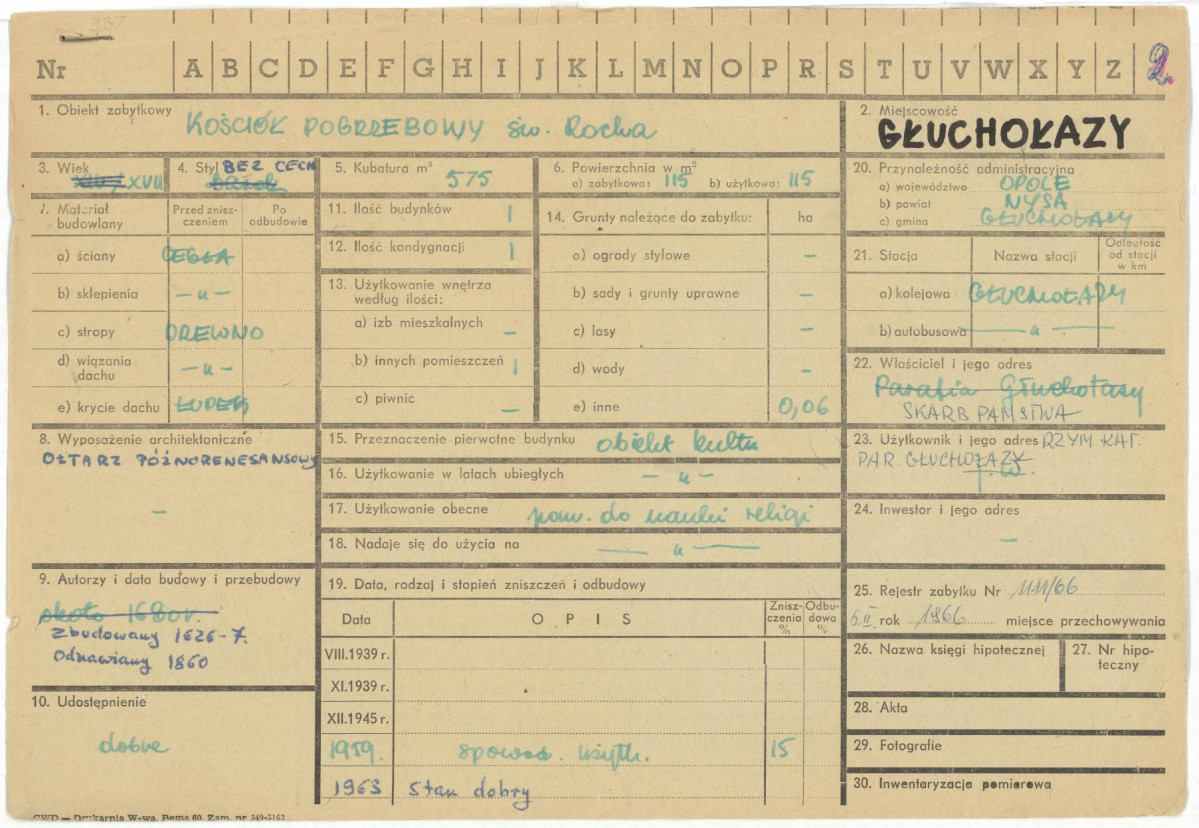 337
Nr A B C D E F G H I J K L M N O P R S T U V W X Y Z 2.
1. Obiekt zabytkowy KOŚCIÓŁ POGRZEBOWY św. Rocha
2. Miejscowość
GŁUCHOŁAZY
3. Wiek XVII
4. Styl BEZ CECH
barok
5. Kubatura m³ 575
6. Powierzchnia w m²
a) zabytkowa: 115 b) użytkowa: 115
20. Przynależność administracyjna
a) województwo OPOLE
b) powiat NYSA
c) gmina GŁUCHOŁAZY
7. Materiał budowlany
Przed zniszczeniem
Po odbudowie
a) ściany CEGŁA
b) sklepienia —„—
c) stropy DREWNO
d) wiązania dachu —„—
e) krycie dachu ŁUPEK
11. Ilość budynków 1
12. Ilość kondygnacji 1
13. Użytkowanie wnętrza
według ilości:
a) izb mieszkalnych —
b) innych pomieszczeń 1
c) piwnic —
14. Grunty należące do zabytku: ha
a) ogrody stylowe —
b) sady i grunty uprawne —
c) lasy —
d) wody —
e) inne 0,06
21. Stacja Nazwa stacji Odległość od stacji w km
a) kolejowa GŁUCHOŁAZY
b) autobusowa —„—
22. Właściciel i jego adres
Parafia Głuchołazy
SKARB PAŃSTWA
8. Wyposażenie architektoniczne
OŁTARZ PÓŹNORENESANSOWY
—
15. Przeznaczenie pierwotne budynku obiekt kultu
16. Użytkowanie w latach ubiegłych —„—
17. Użytkowanie obecne pom. do nauki religi
18. Nadaje się do użycia na —„—
23. Użytkownik i jego adres RZYM. KAT.
PAR. GŁUCHOŁAZY
j.w.
24. Inwestor i jego adres
—
9. Autorzy i data budowy i przebudowy
około 1680r.
Zbudowany 1626-7.
Odnawiany 1860
10. Udostępnienie
dobre
19. Data, rodzaj i stopień zniszczeń i odbudowy
Data OPIS Zniszczenia % Odbudowa %
VIII.1939 r.
XI.1939 r.
XII.1945 r.
1959. spowod. użytk. 15
1963 Stan dobry
25. Rejestr zabytku Nr 1111/66
5.II rok 1966 miejsce przechowywania
26. Nazwa księgi hipotecznej
27. Nr hipoteczny
28. Akta
29. Fotografie
30. Inwentaryzacja pomiarowa
CWD — Drukarnia W-wa, Bema 60. Zam. nr 349-5162